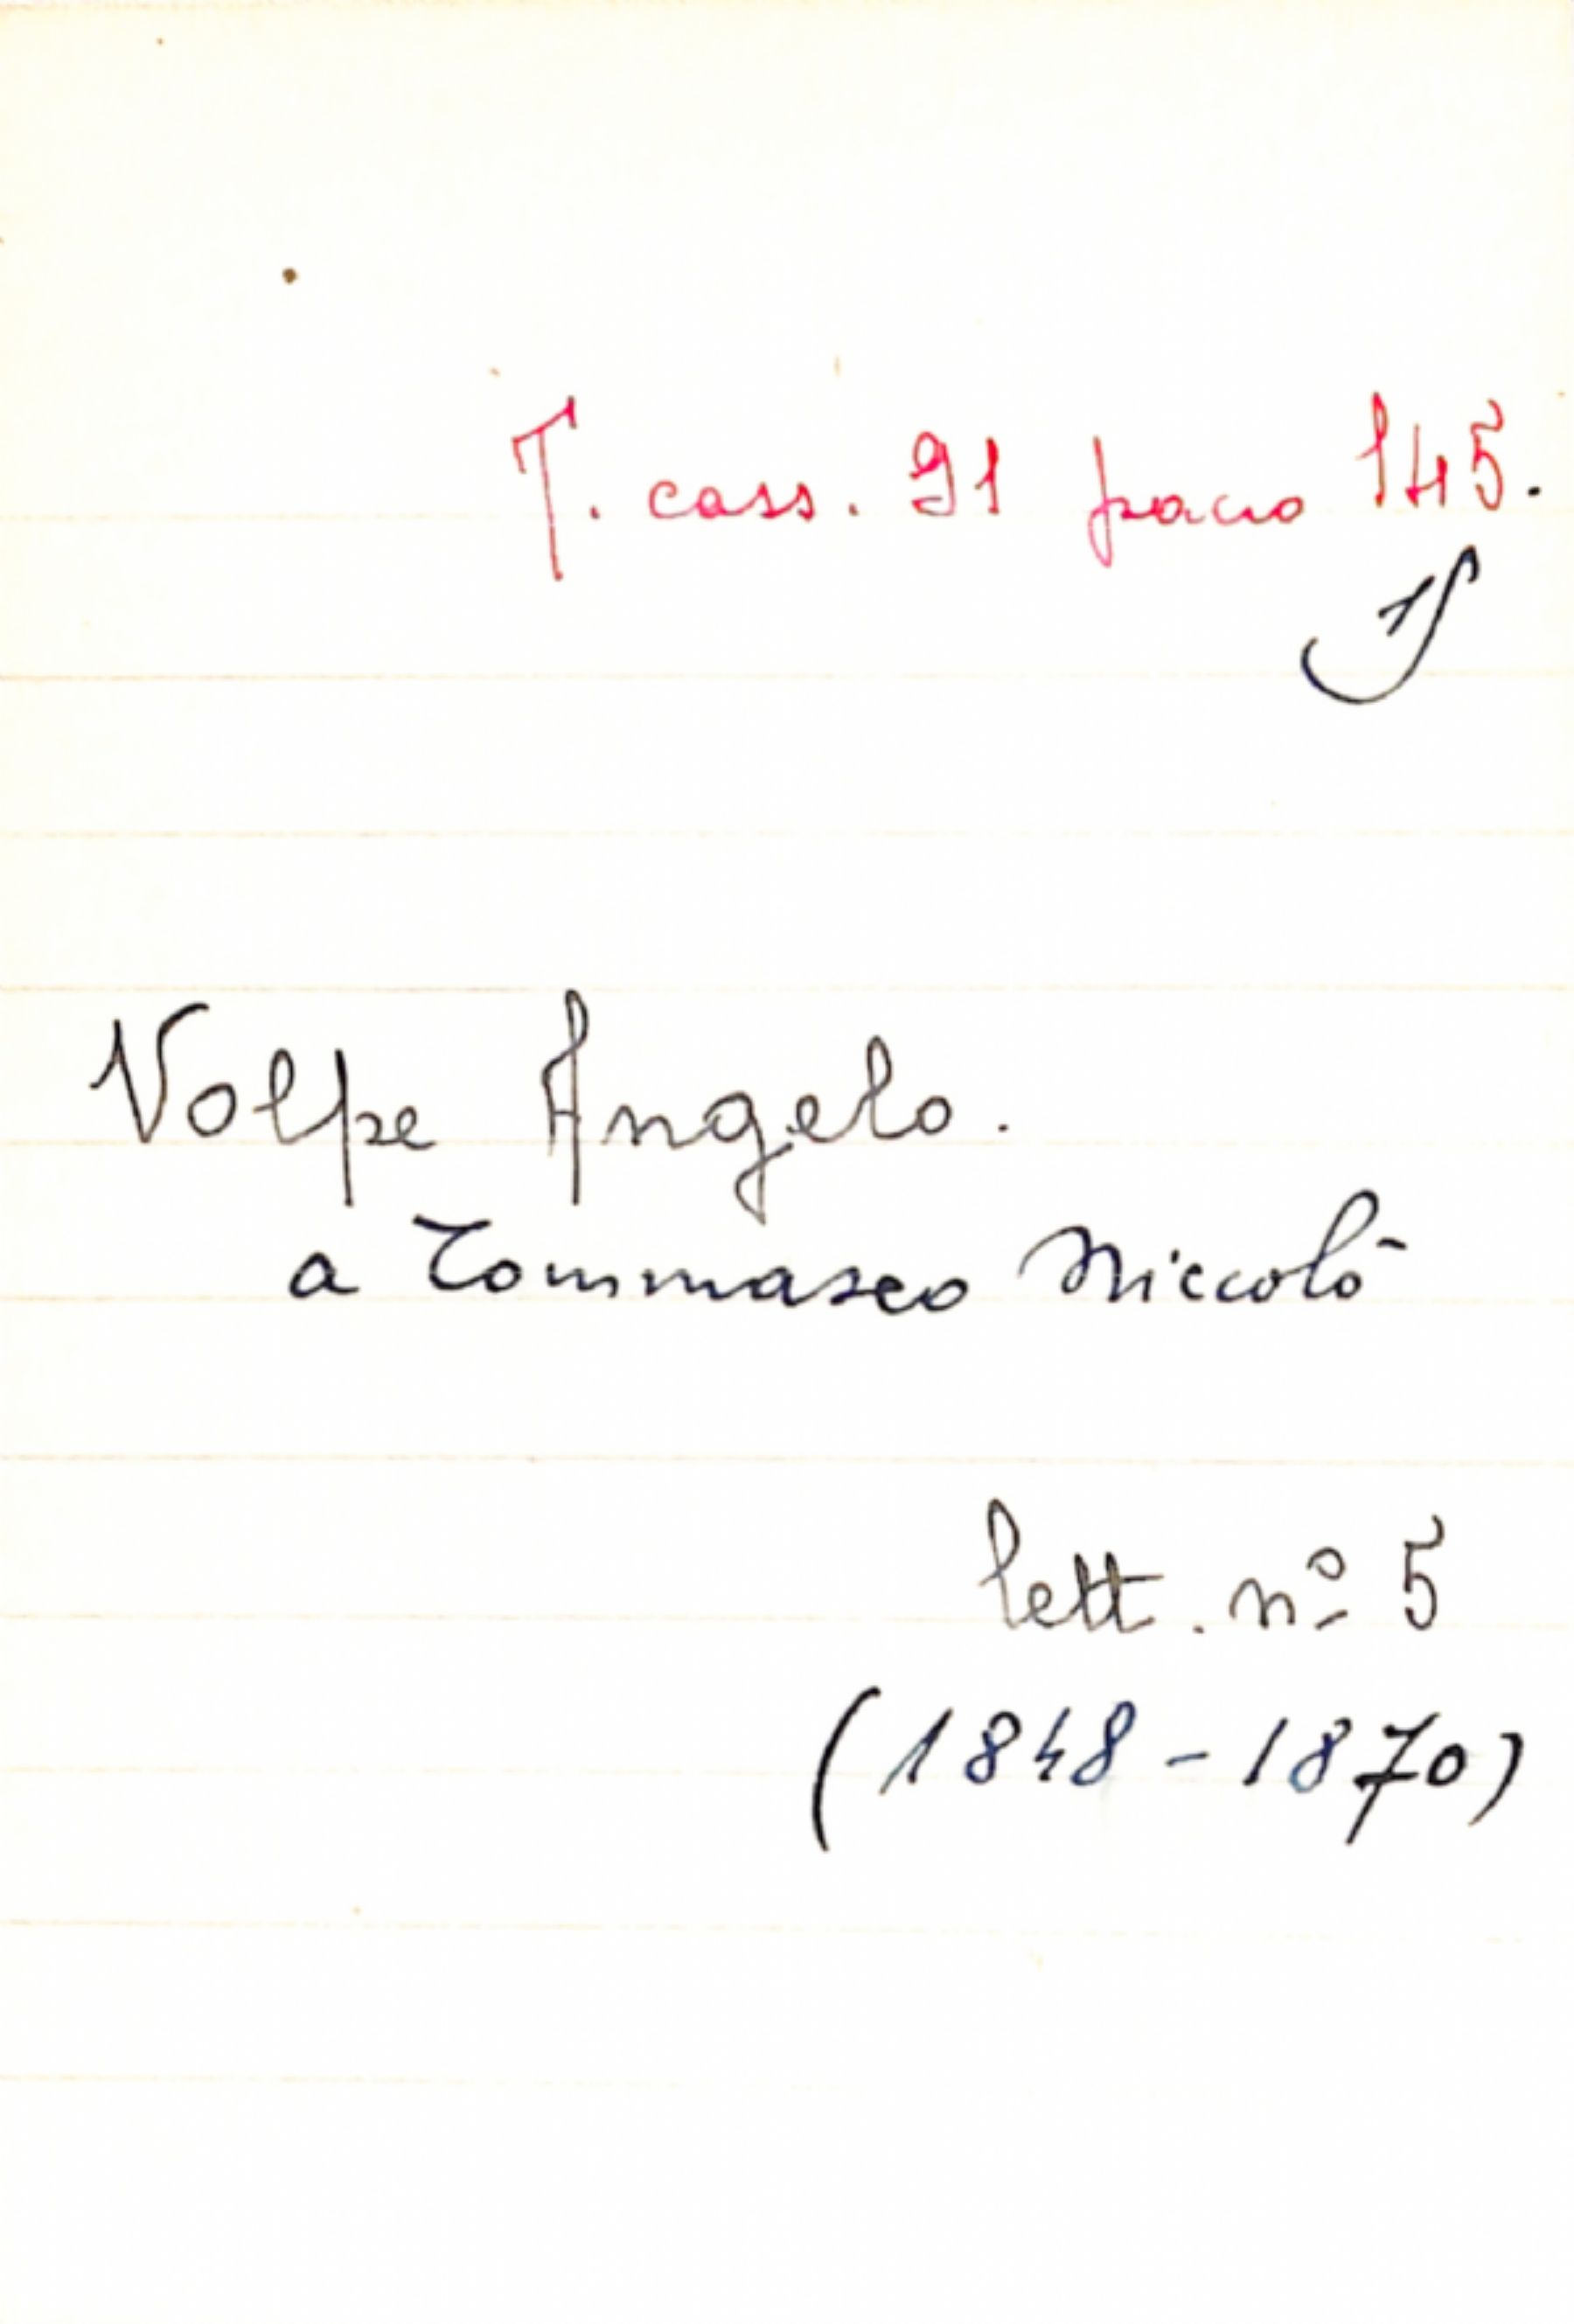 T. cass. 91 pacco 145.
1
Volpe Angelo.
a Tommaseo Niccolò
lett. nº 5
(1848-1870)